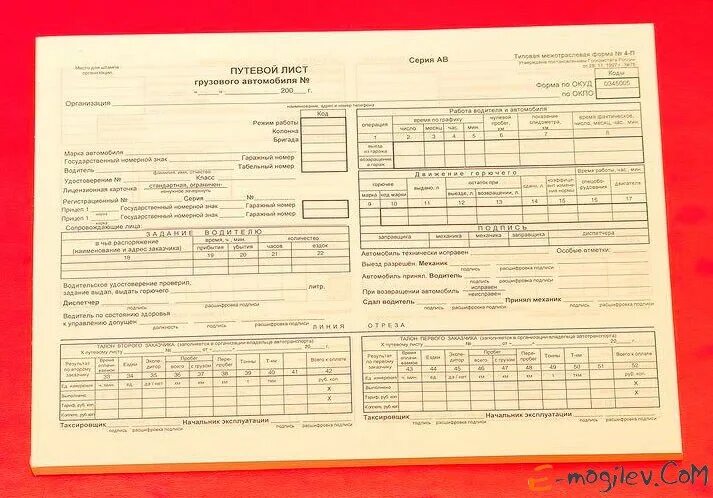 Место для штампа
организации
ПУТЕВОЙ ЛИСТ
грузового автомобиля №
Серия АВ
Типовая межотраслевая форма № 4-П
Утверждена постановлением Госкомстата России
от 28. 11. 1997 г. №78
« » 200 г.
Коды
Форма по ОКУД 0345005
по ОКПО
Организация
наименование, адрес и номер телефона
Код
Режим работы
Колонна
Бригада
Марка автомобиля
Государственный номерной знак Гаражный номер
Водитель Табельный номер
фамилия, имя, отчество
Удостоверение № Класс
Лицензионная карточка стандартная, ограничен-
ненужное зачеркнуть
Регистрационный № Серия №
Прицеп 1 Государственный номерной знак Гаражный номер
марка
Прицеп 1 Государственный номерной знак Гаражный номер
марка
Сопровождающие лица:
Работа водителя и автомобиля
операция
время по графику
число месяц час. мин.
нулевой пробег, км
показание спидометра, км
время фактическое, число, месяц, час, мин.
1 2 3 4 5 6 7 8
выезд из гаража
возвращение в гараж
Движение горючего
Время работы, час, мин.
горючее
марка код марки
выдано, л
остаток при
выезде, л возвращении, л
сдано, л
коэффициент изменения нормы
спецоборудования
двигателя
9 10 11 12 13 14 15 16 17
ПОДПИСЬ
заправщика механика механика заправщика диспетчера
ЗАДАНИЕ ВОДИТЕЛЮ
в чьё распоряжение
(наименование и адрес заказчика)
время, ч., мин.
прибытия убытия
количество
часов ездок
18 19 20 21 22
Автомобиль технически исправен Особые отметки:
Выезд разрешен. Механик
подпись расшифровка подписи
Автомобиль принял. Водитель
подпись расшифровка подписи
При возвращении автомобиль исправен
неисправен
Сдал водитель Принял механик
подпись расшифровка подписи подпись расшифровка подписи
Водительское удостоверение проверил,
задание выдал, выдать горючего литр.
Диспетчер
подпись расшифровка подписи
Водитель по состоянию здоровья
к управлению допущен
должность подпись расшифровка подписи
ЛИНИЯ ОТРЕЗА
ТАЛОН ВТОРОГО ЗАКАЗЧИКА (заполняется в организации-владельце автотранспорта)
К путевому листу № от « » 20 г.
Результат по второму заказчику
Время оплачиваемое
Ездки
Экспедитор
Пробег
всего с грузом
Перепробег
Тонны
Т-км
Всего к оплате
33 34 35 36 37 38 39 40 41 42
Ед. измерения ч, мин. ед. да / нет км км км т ткм руб. коп.
Выполнено X
Тариф, руб. коп. X
К оплате, руб. коп.
Таксировщик Начальник эксплуатации
подпись расшифровка подписи подпись расшифровка подписи
ТАЛОН ПЕРВОГО ЗАКАЗЧИКА (заполняется в организации-владельце автотранспорта)
К путевому листу № от « » 20 г.
Результат по первому заказчику
Время оплачиваемое
Ездки
Экспедитор
Пробег
всего с грузом
Перепробег
Тонны
Т-км
Всего к оплате
43 44 45 46 47 48 49 50 51 52
Ед. измерения ч, мин. ед. да / нет км км км т ткм руб. коп.
Выполнено X
Тариф, руб. коп. X
К оплате, руб. коп.
Таксировщик Начальник эксплуатации
подпись расшифровка подписи подпись расшифровка подписи
E-mogilev.CoM